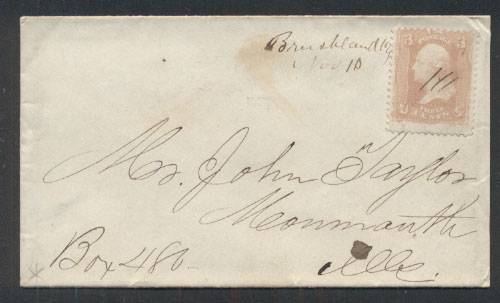 Brushland NY
Nov 10
3 3
U THREE CENTS S
Mr. John Taylor
Monmouth
Box 480
Ills.